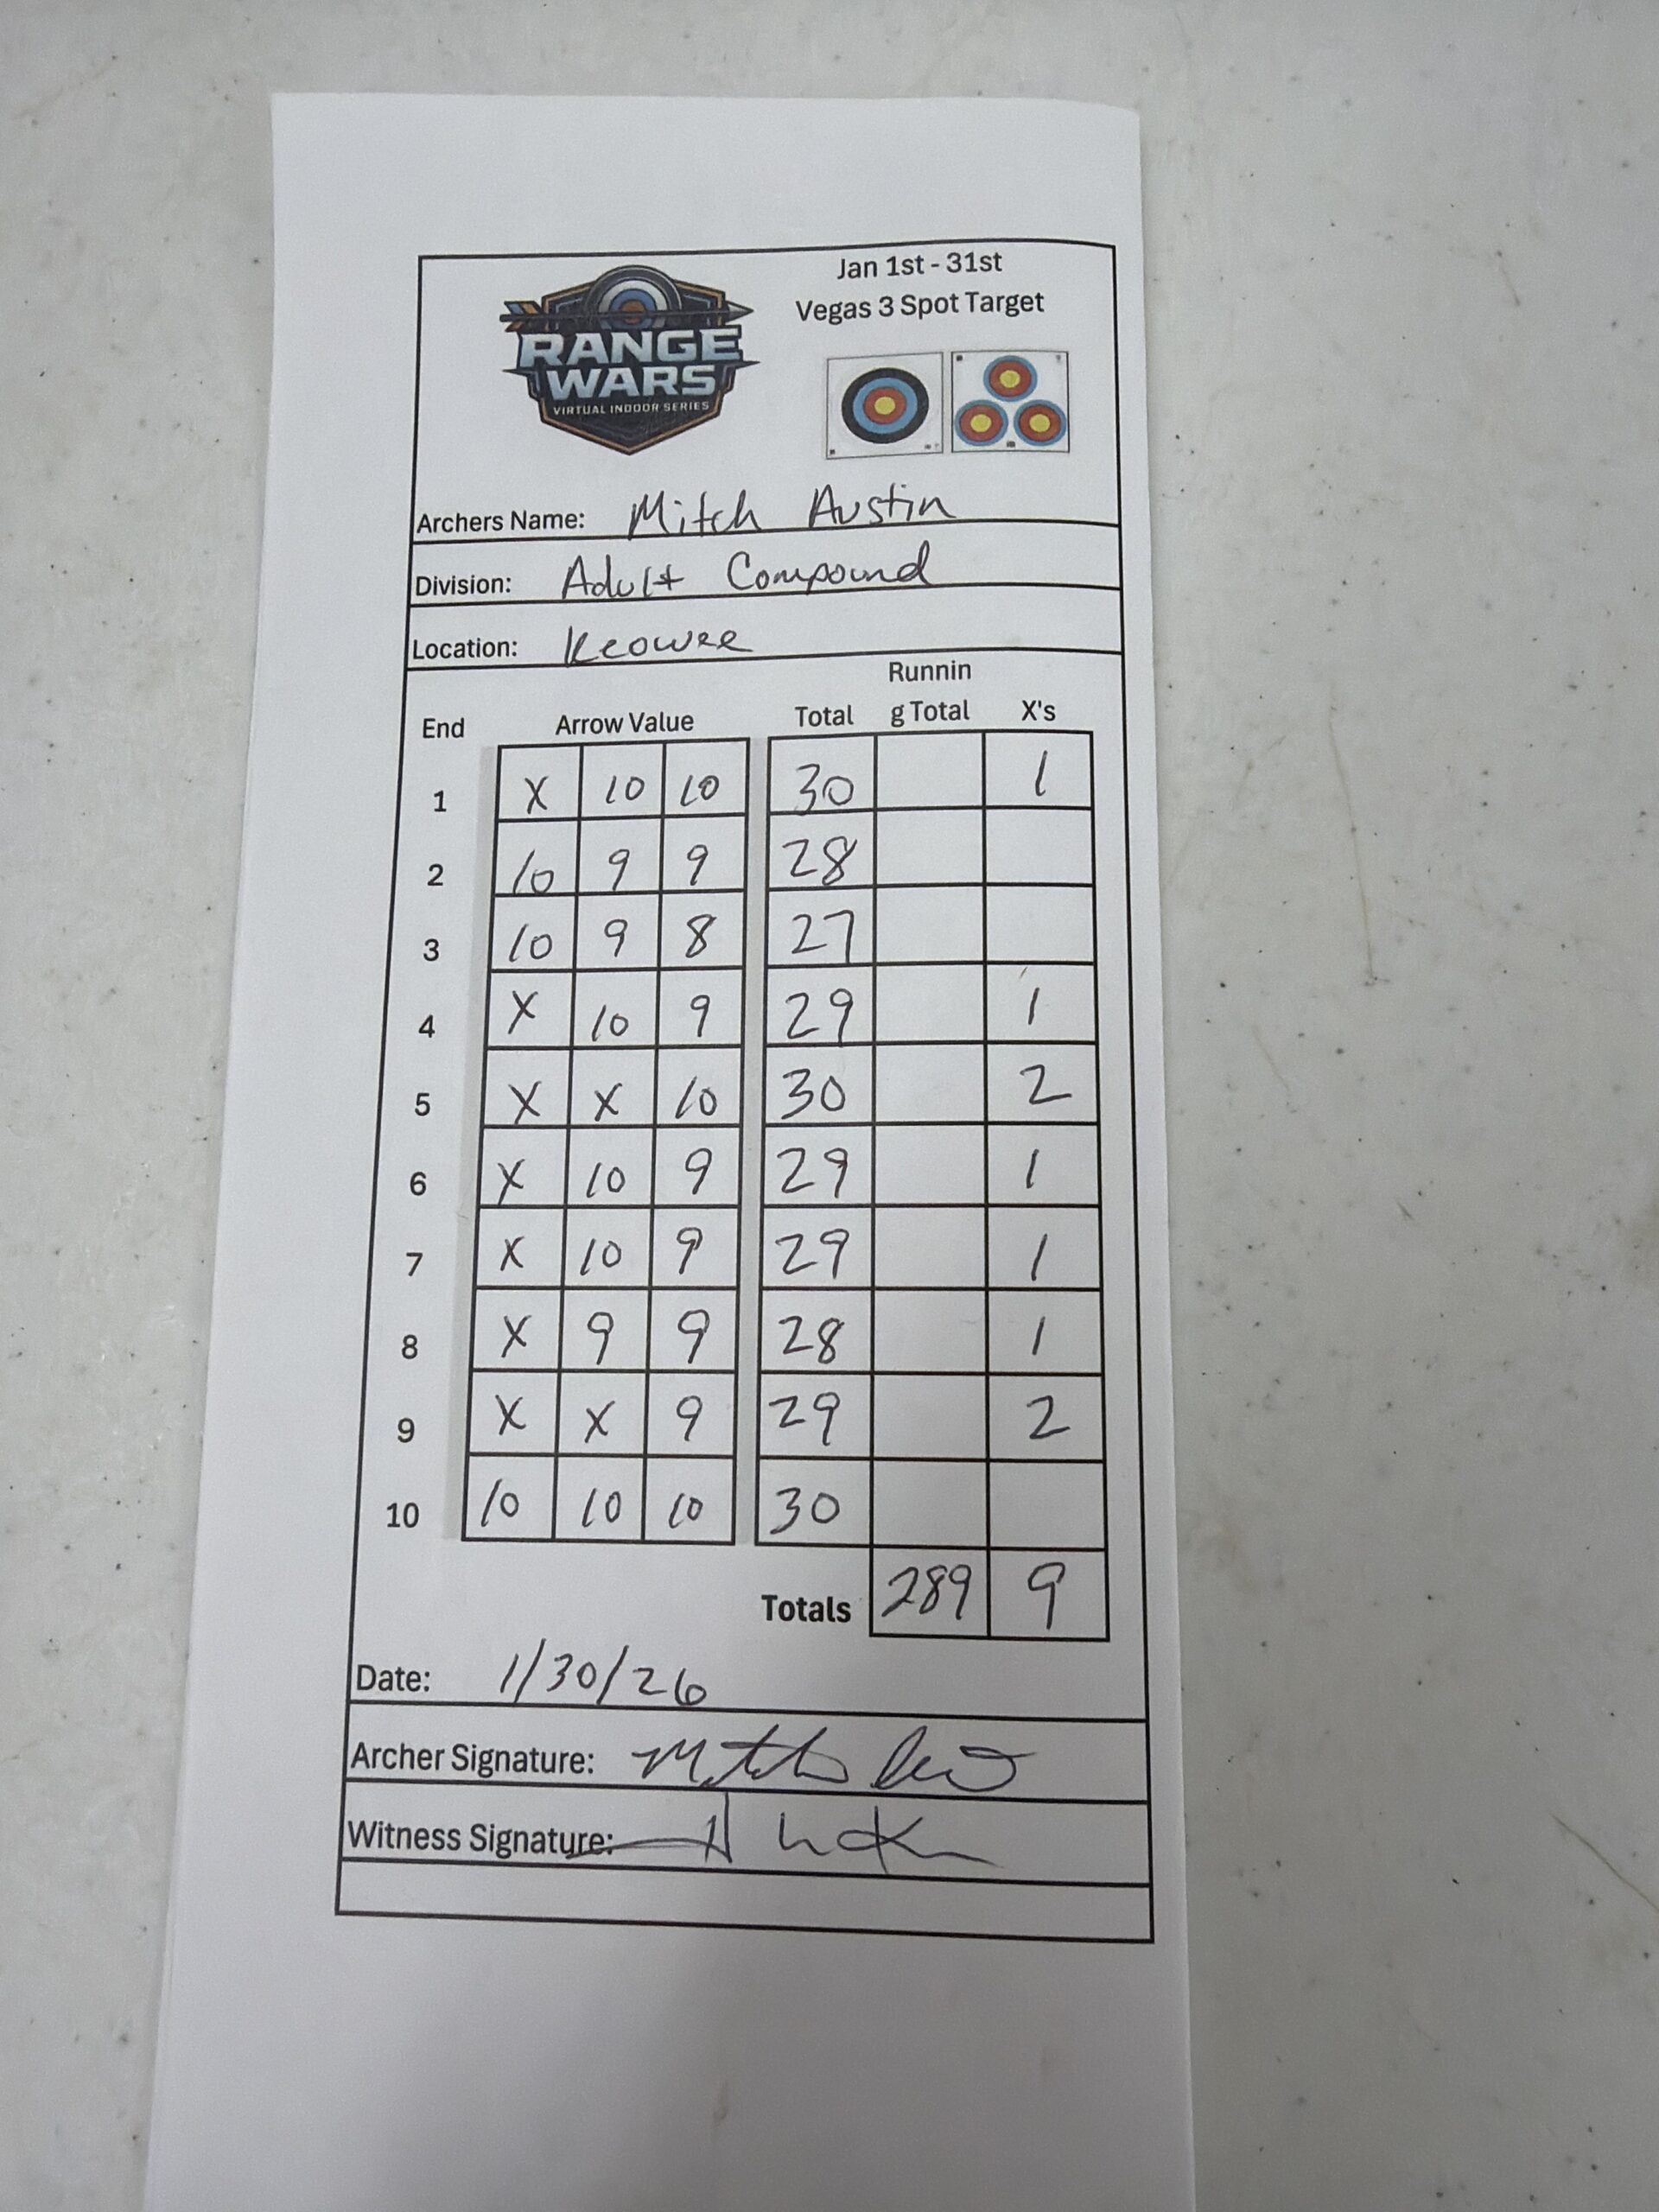 Jan 1st - 31st
Vegas 3 Spot Target
RANGE
WARS
VIRTUAL INDOOR SERIES
Archers Name: Mitch Austin
Division: Adult Compound
Location: Keowee
End Arrow Value Total Runnin g Total X's
1 X 10 10 30 1
2 10 9 9 28
3 10 9 8 27
4 X 10 9 29 1
5 X X 10 30 2
6 X 10 9 29 1
7 X 10 9 29 1
8 X 9 9 28 1
9 X X 9 29 2
10 10 10 10 30
Totals 289 9
Date: 1/30/26
Archer Signature:
Witness Signature: